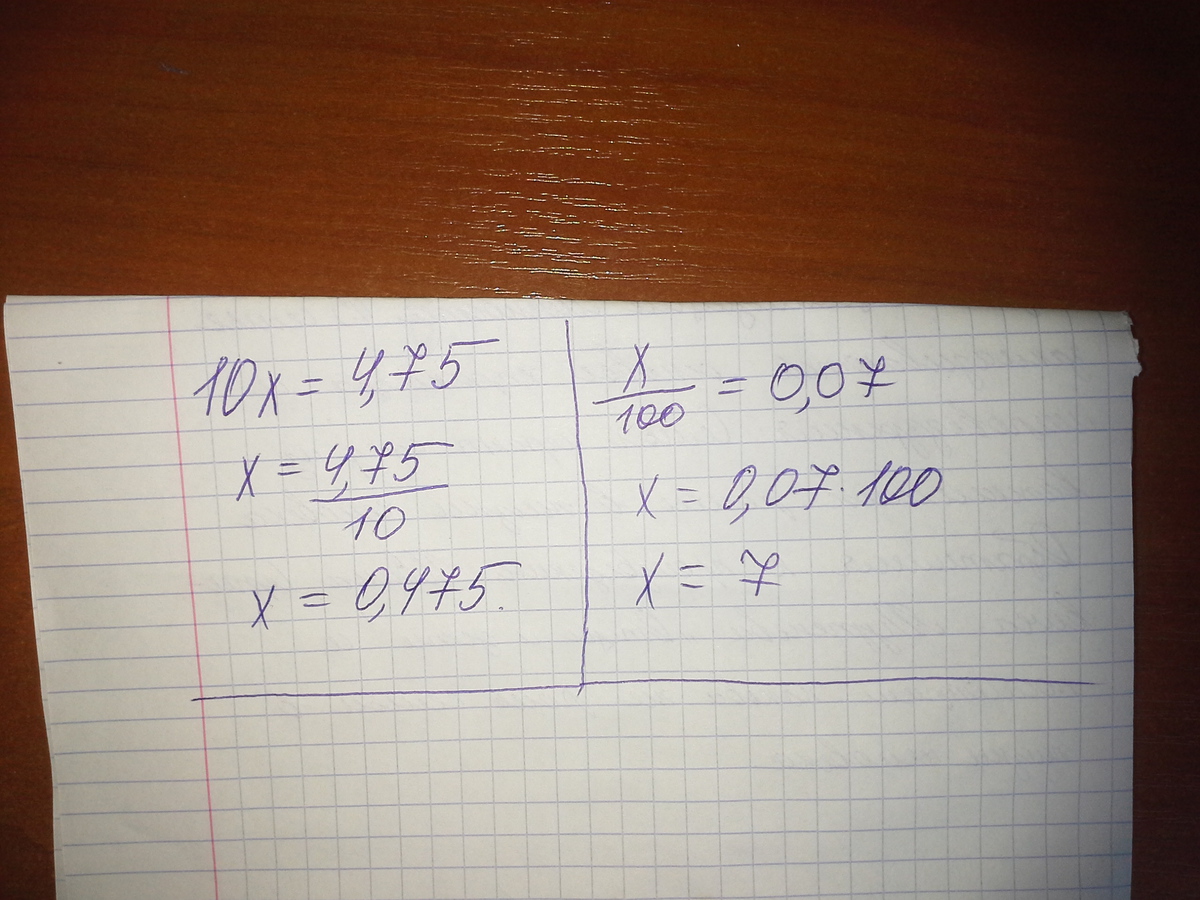 10x = 4,75
x = 4,75/10
x = 0,475.
x/100 = 0,07
x = 0,07 · 100
x = 7